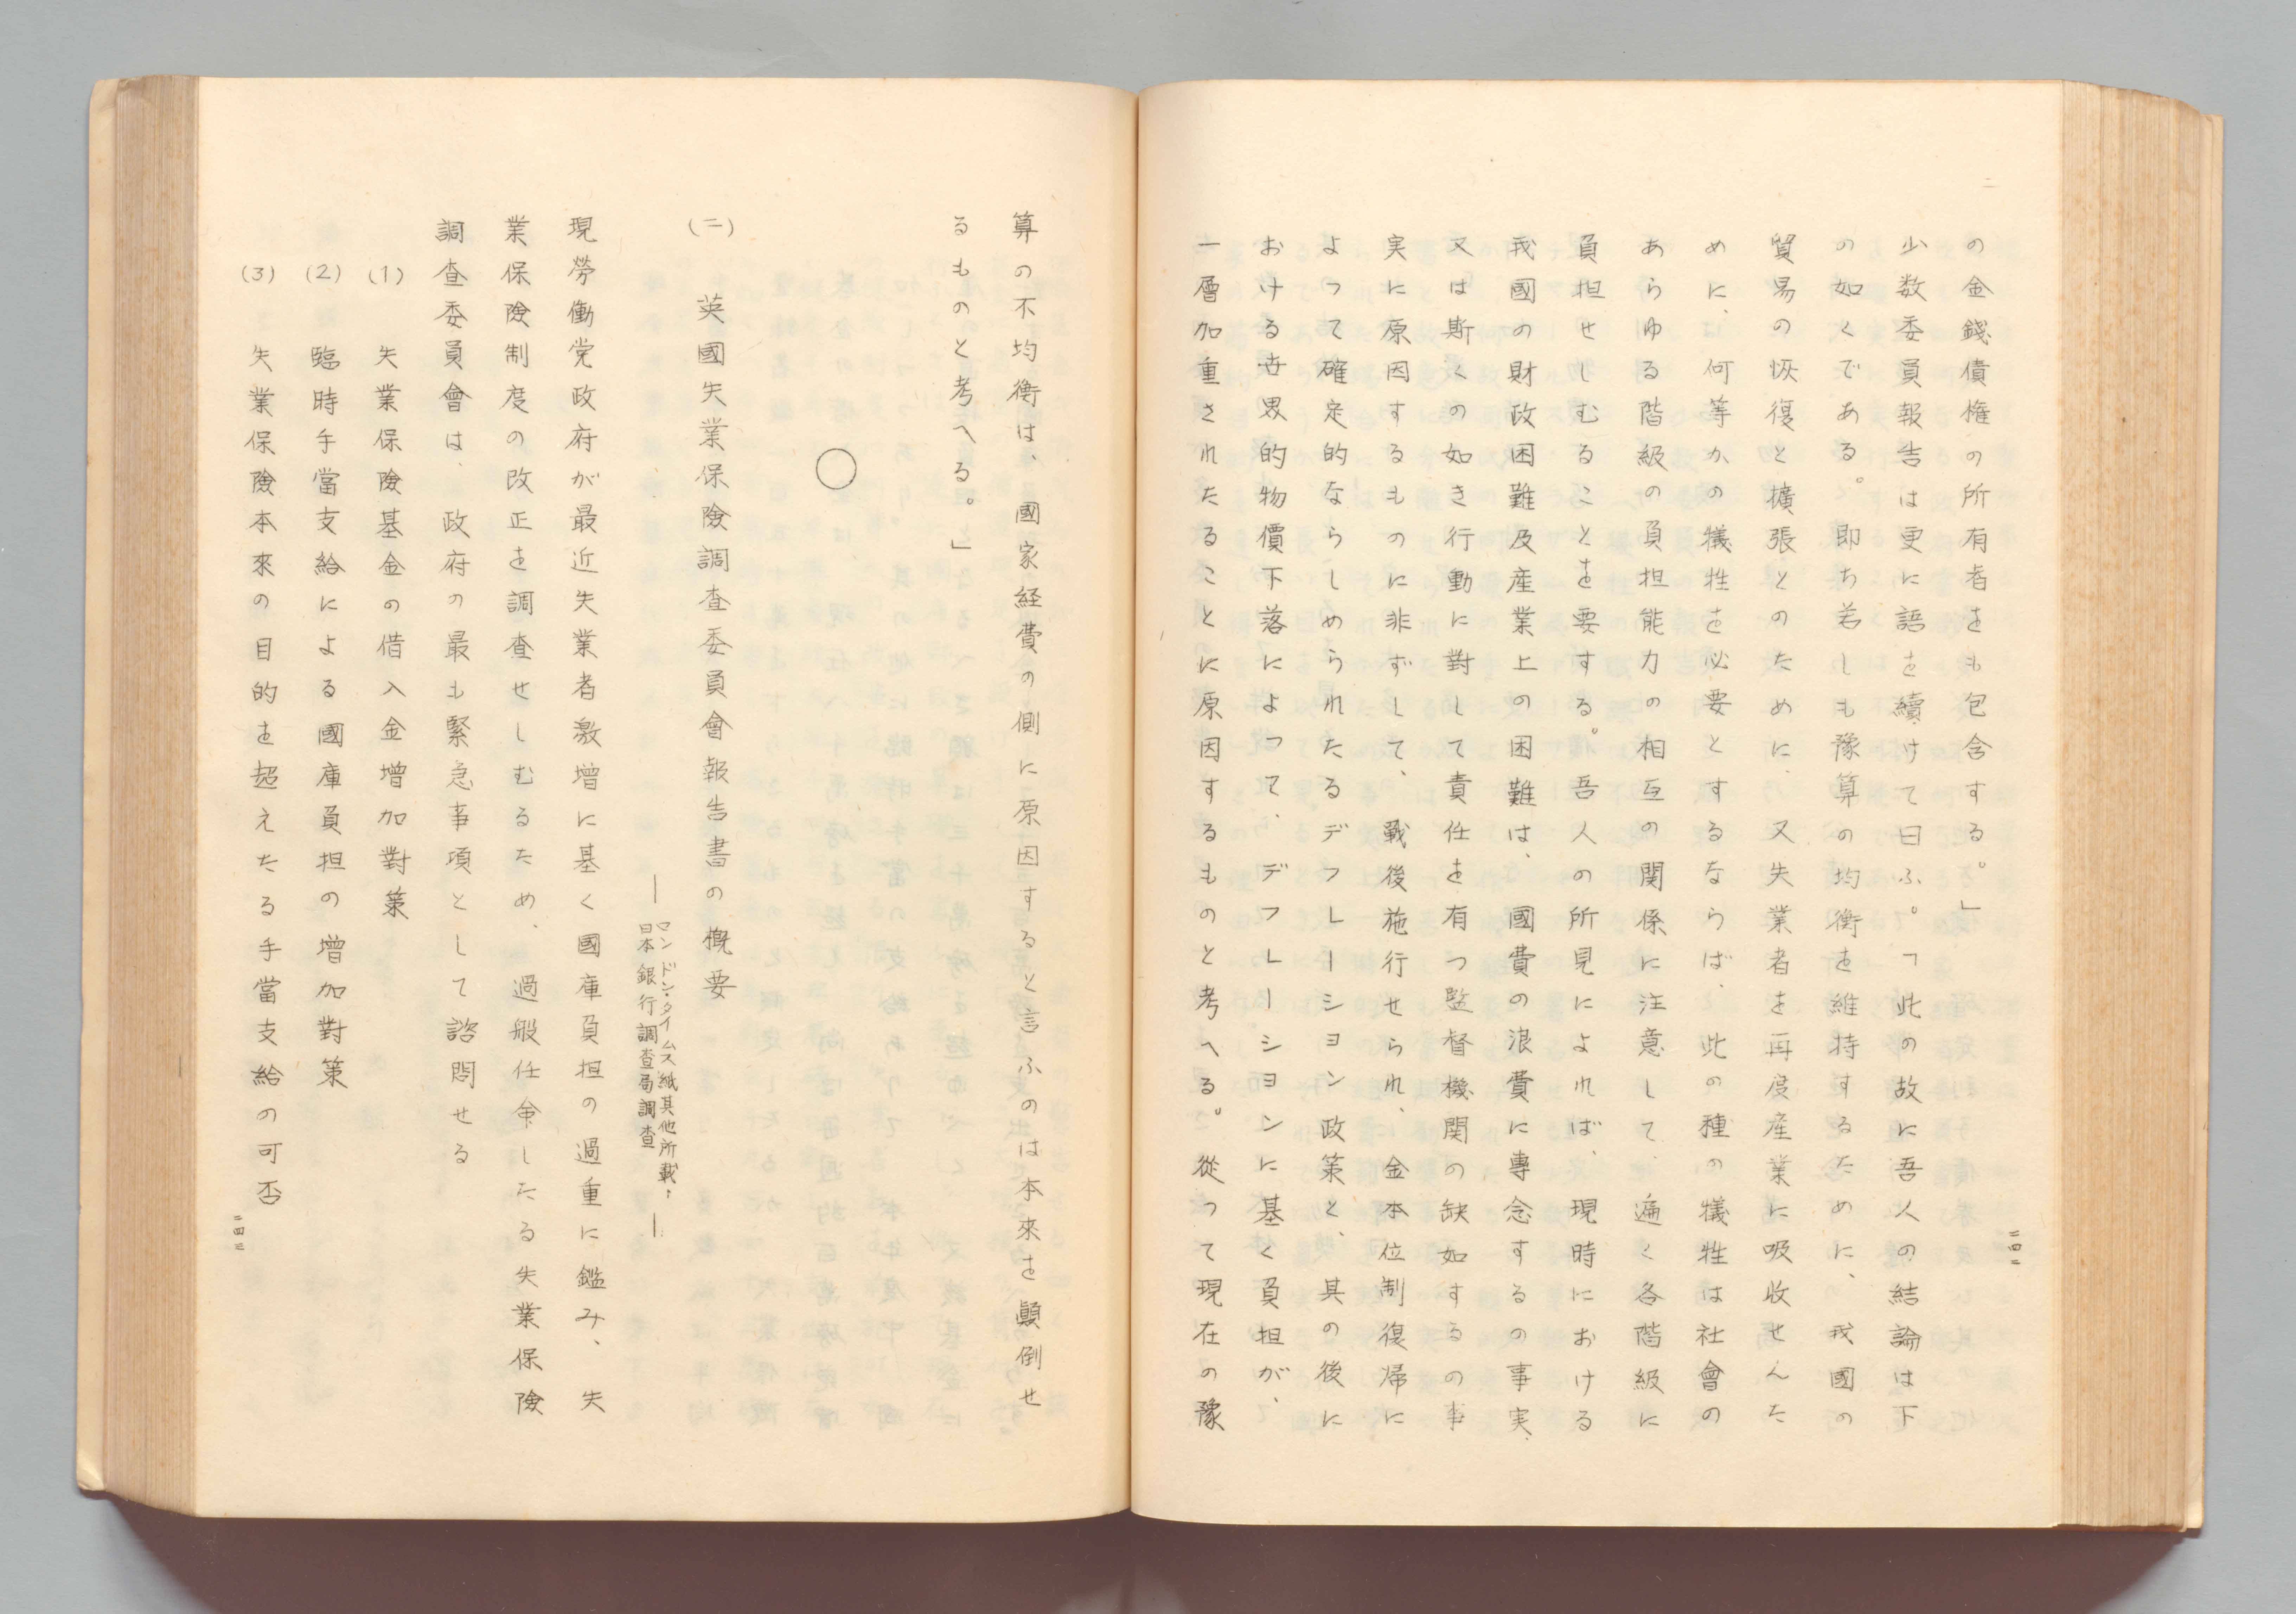 の金錢債権の所有者をも包含する。」
少数委員報告は更に語を續けて曰ふ。「此の故に吾人の結論は下
の如くである。即ち若しも豫算の均衡を維持するために、我國の
貿易の恢復と擴張とのために、又失業者を再度産業に吸收せんた
めに、何等かの犠牲を必要とするならば、此の種の犠牲は社會の
あらゆる階級の負担能力の相互の関係に注意して、遍く各階級に
負担せしむることを要する。吾人の所見によれば、現時における
我國の財政困難及産業上の困難は、國費の浪費に專念するの事実、
又は斯くの如き行動に對して責任を有つ監督機関の缺如するの事
実に原因するものに非ずして、戰後施行せられ、金本位制復帰に
よつて確定的ならしめられたるデフレーシヨン政策と、其の後に
おける世界的物價下落によつて、デフレーシヨンに基く負担が、
一層加重されたることに原因するものと考へる。從つて現在の豫
算の不均衡は、國家経費の側に原因すると言ふのは本來を顚倒せ
るものと考へる。」
○
(二) 英國失業保險調査委員會報告書の概要
― ロンドン・タイムス紙其他所載、
日本銀行調査局調査 ―
現勞働党政府が最近失業者激増に基く國庫負担の過重に鑑み、失
業保險制度の改正を調査せしむるため、過般任命したる失業保險
調査委員會は、政府の最も緊急事項として諮問せる
(1) 失業保險基金の借入金増加對策
(2) 臨時手當支給による國庫負担の増加對策
(3) 失業保險本來の目的を超えたる手當支給の可否